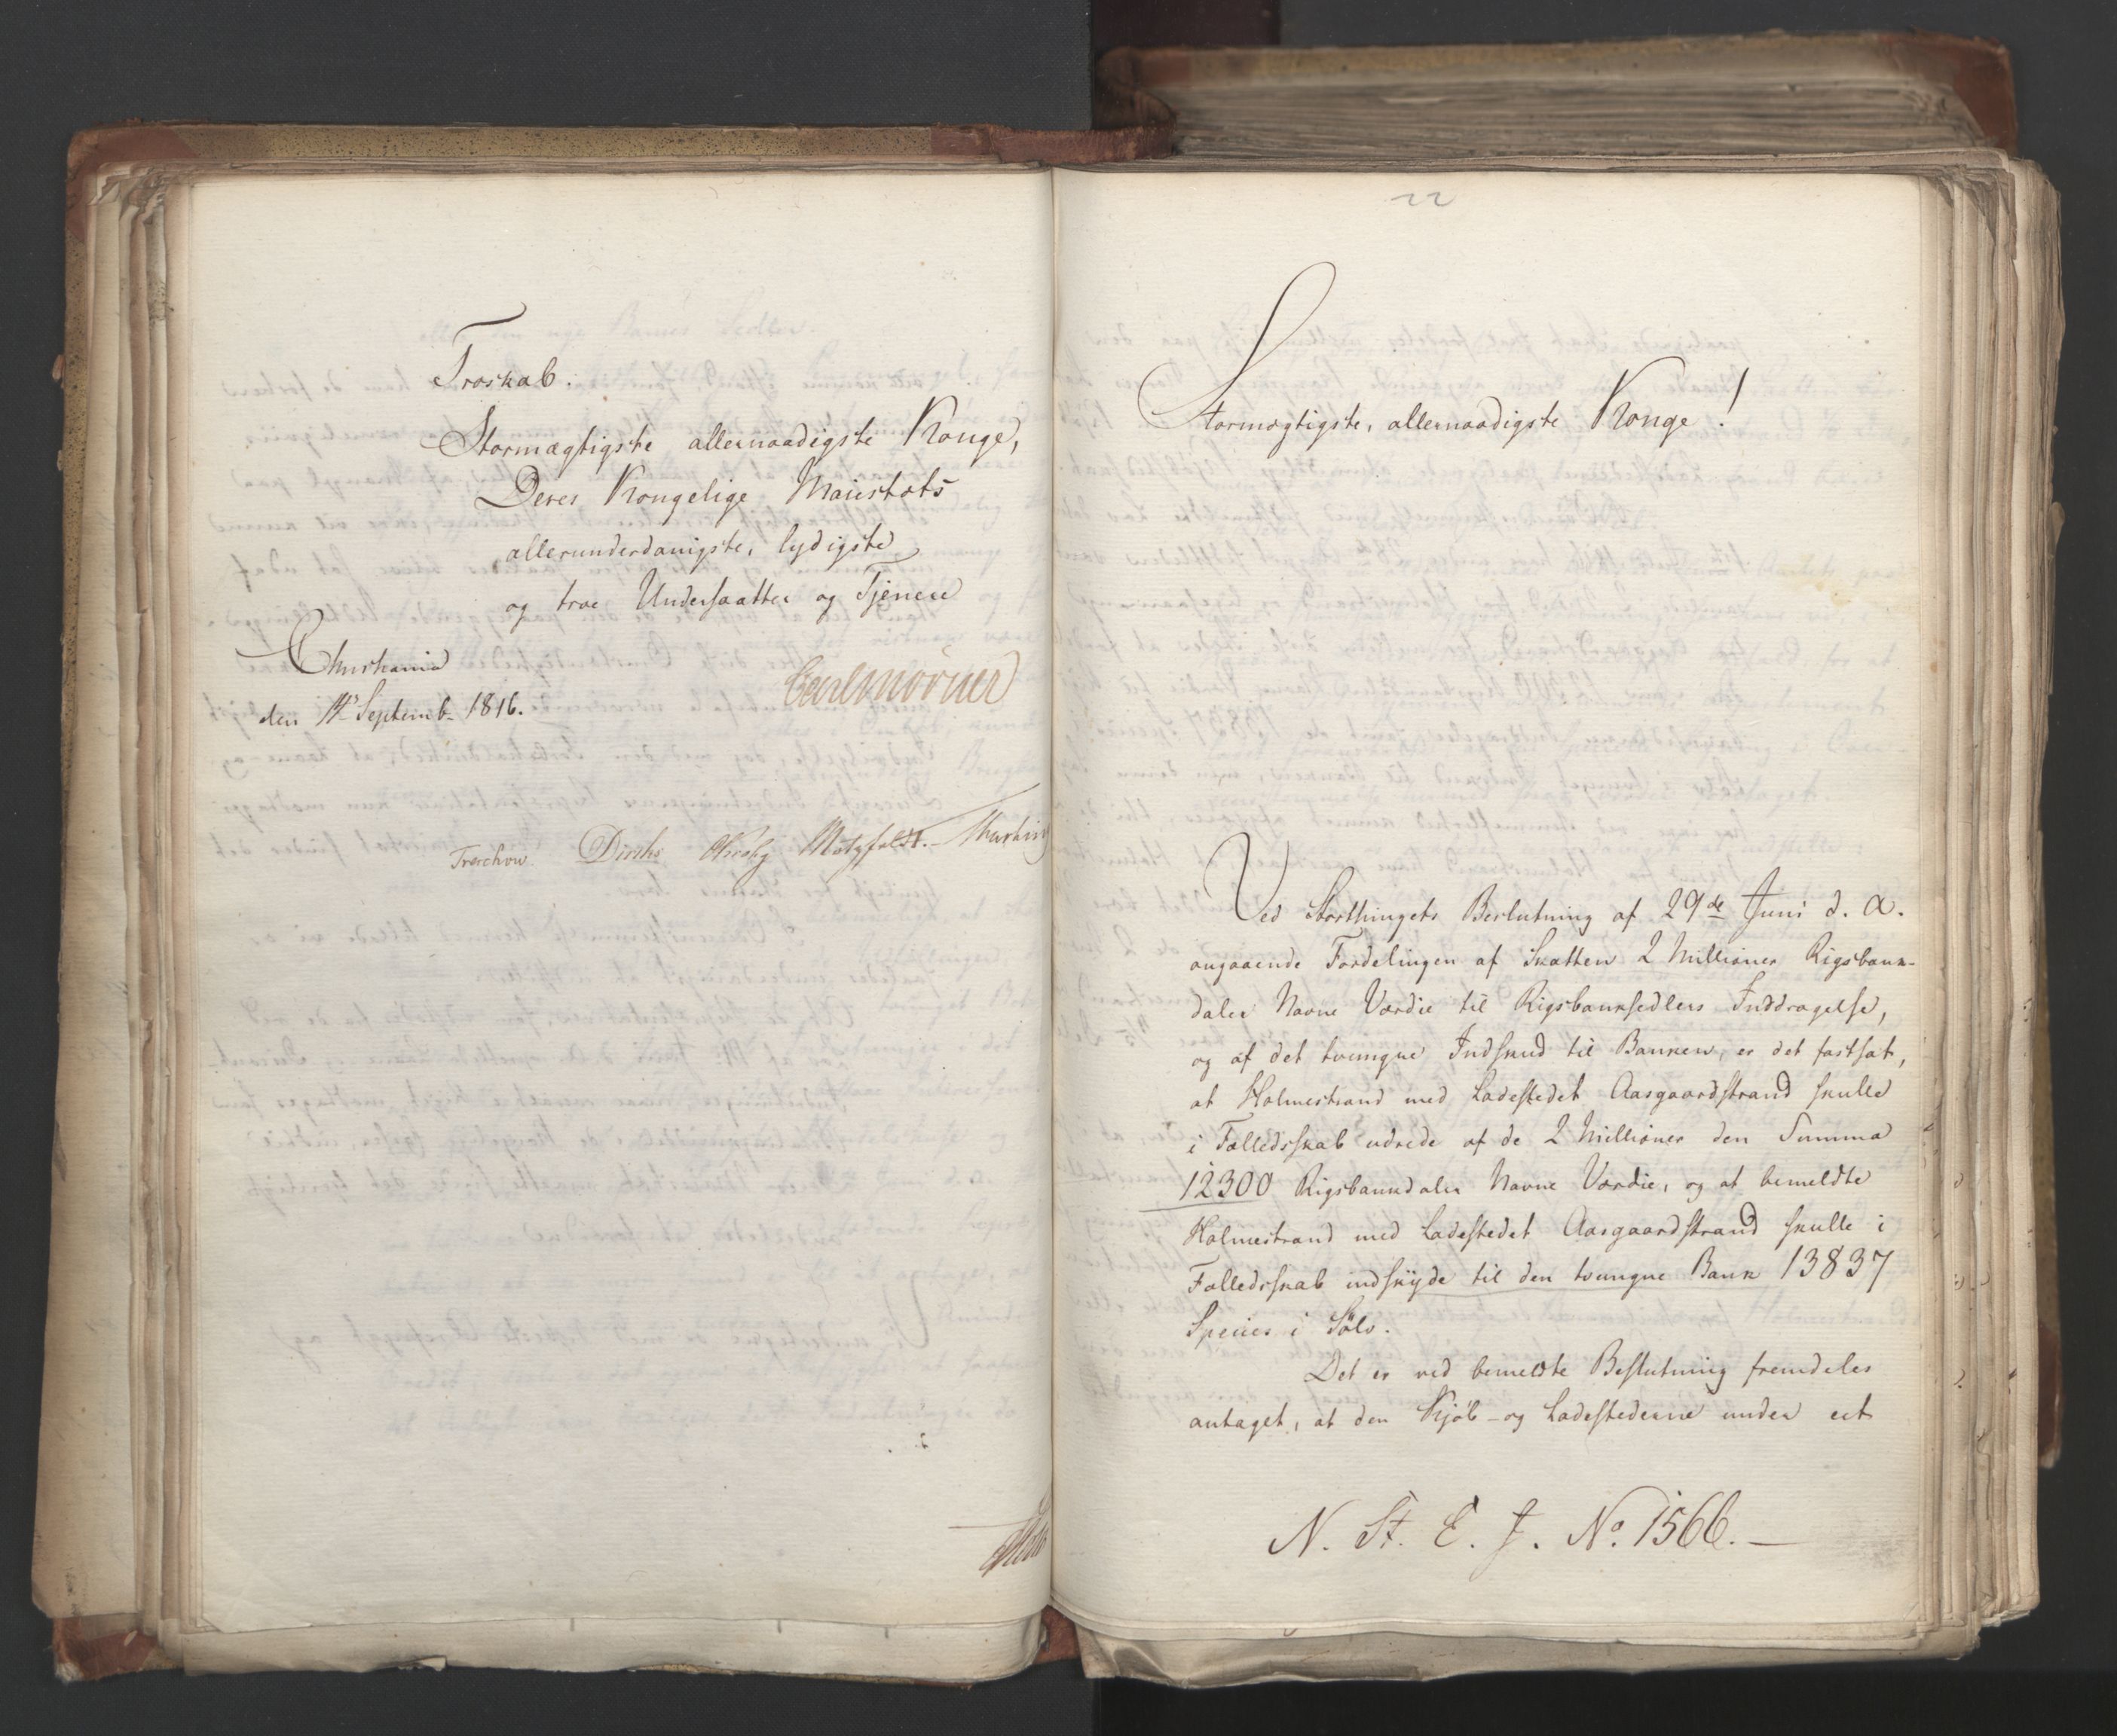 Troskab.
Stormægtigste allernaadigste Konge,
Deres Kongelige Maiestæts
allerunderdanigste, lydigste
og troe Undersaatter og Tjenere
Christiania
den Septemb. 1816.
Carl Mörner
Treschow. Diriks Krohg Motzfeldt.
22
Stormægtigste, allernaadigste Konge!
Ved Storthingets Beslutning af 29de Juni d. A.
angaaende Fordelingen af Skatten 2 Millioner Rigsbank-
daler Navne Værdie til Rigsbanksedlers Inddragelse,
og af det tvungne Indskud til Banken, er det fastsat,
at Holmestrand med Ladestedet Aasgaardstrand skulle
i Fælledsskab udrede af de 2 Millioner den Summa
12300 Rigsbankdaler Navne Værdie, og at bemeldte
Holmestrand med Ladestedet Aasgaardstrand skulle i
Fælledsskab indskyde til den tvungne Bank 13837
Species i Sølv.
Det er ved bemeldte Beslutning fremdeles
antaget, at den Kjøb- og Ladestederne under eet
N. St. E. J. No. 1566.